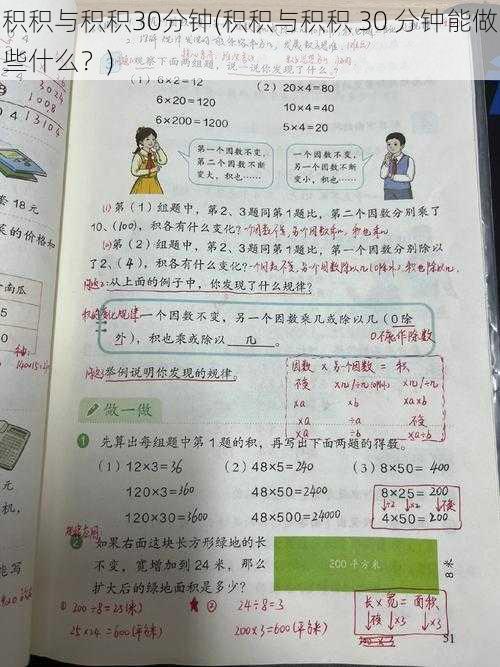 积积与积积30分钟(积积与积积 30 分钟能做
些什么？)
3024
1008
13104
观察下面两组题，说一说你发现了什么？
(1) 6×2=12
6×20=120
6×200=1200
(2) 20×4=80
10×4=40
5×4=20
第一个因数不变，
第二个因数不断
变大，积也……
一个因数不变，
另一个因数不断
变小，积也……
套 18 元
菜的价格和
南瓜
(1)第（1）组题中，第2、3题同第1题比，第二个因数分别乘了
10、(100)，积各有什么变化？
(2)第（2）组题中，第2、3题同第1题比，第一个因数分别除以
了2、(4)，积各有什么变化？
从上面的例子中，你发现了什么规律？
积的变化规律：一个因数不变，另一个因数乘几或除以几（0除
外），积也乘或除以 几 。
0不能作除数
举例说明你发现的规律。
因数 × 另一个因数 = 积
不变 ×几/÷几(0除外) ×几/÷几
×a ×b ×a×b
×a ÷a 不变
×a ÷b ×a÷b
做一做
1 先算出每组题中第 1 题的积，再写出下面两题的得数。
(1) 12×3=36
120×3=360
120×30=3600
(2) 48×5=240
48×50=2400
48×500=24000
(3) 8×50=400
8×25=200
↓÷2 ↓×2 ↓不变
4×50=200
2 如果右面这块长方形绿地的长
不变，宽增加到 24 米，那么
扩大后的绿地面积是多少？
200 平方米
8米
机，
能写
① 200÷8=25(米)
25×24=600(平方米)
② 24÷8=3
200×3=600(平方米)
长×宽=面积
↓不变 ↓×3 ↓×3
51